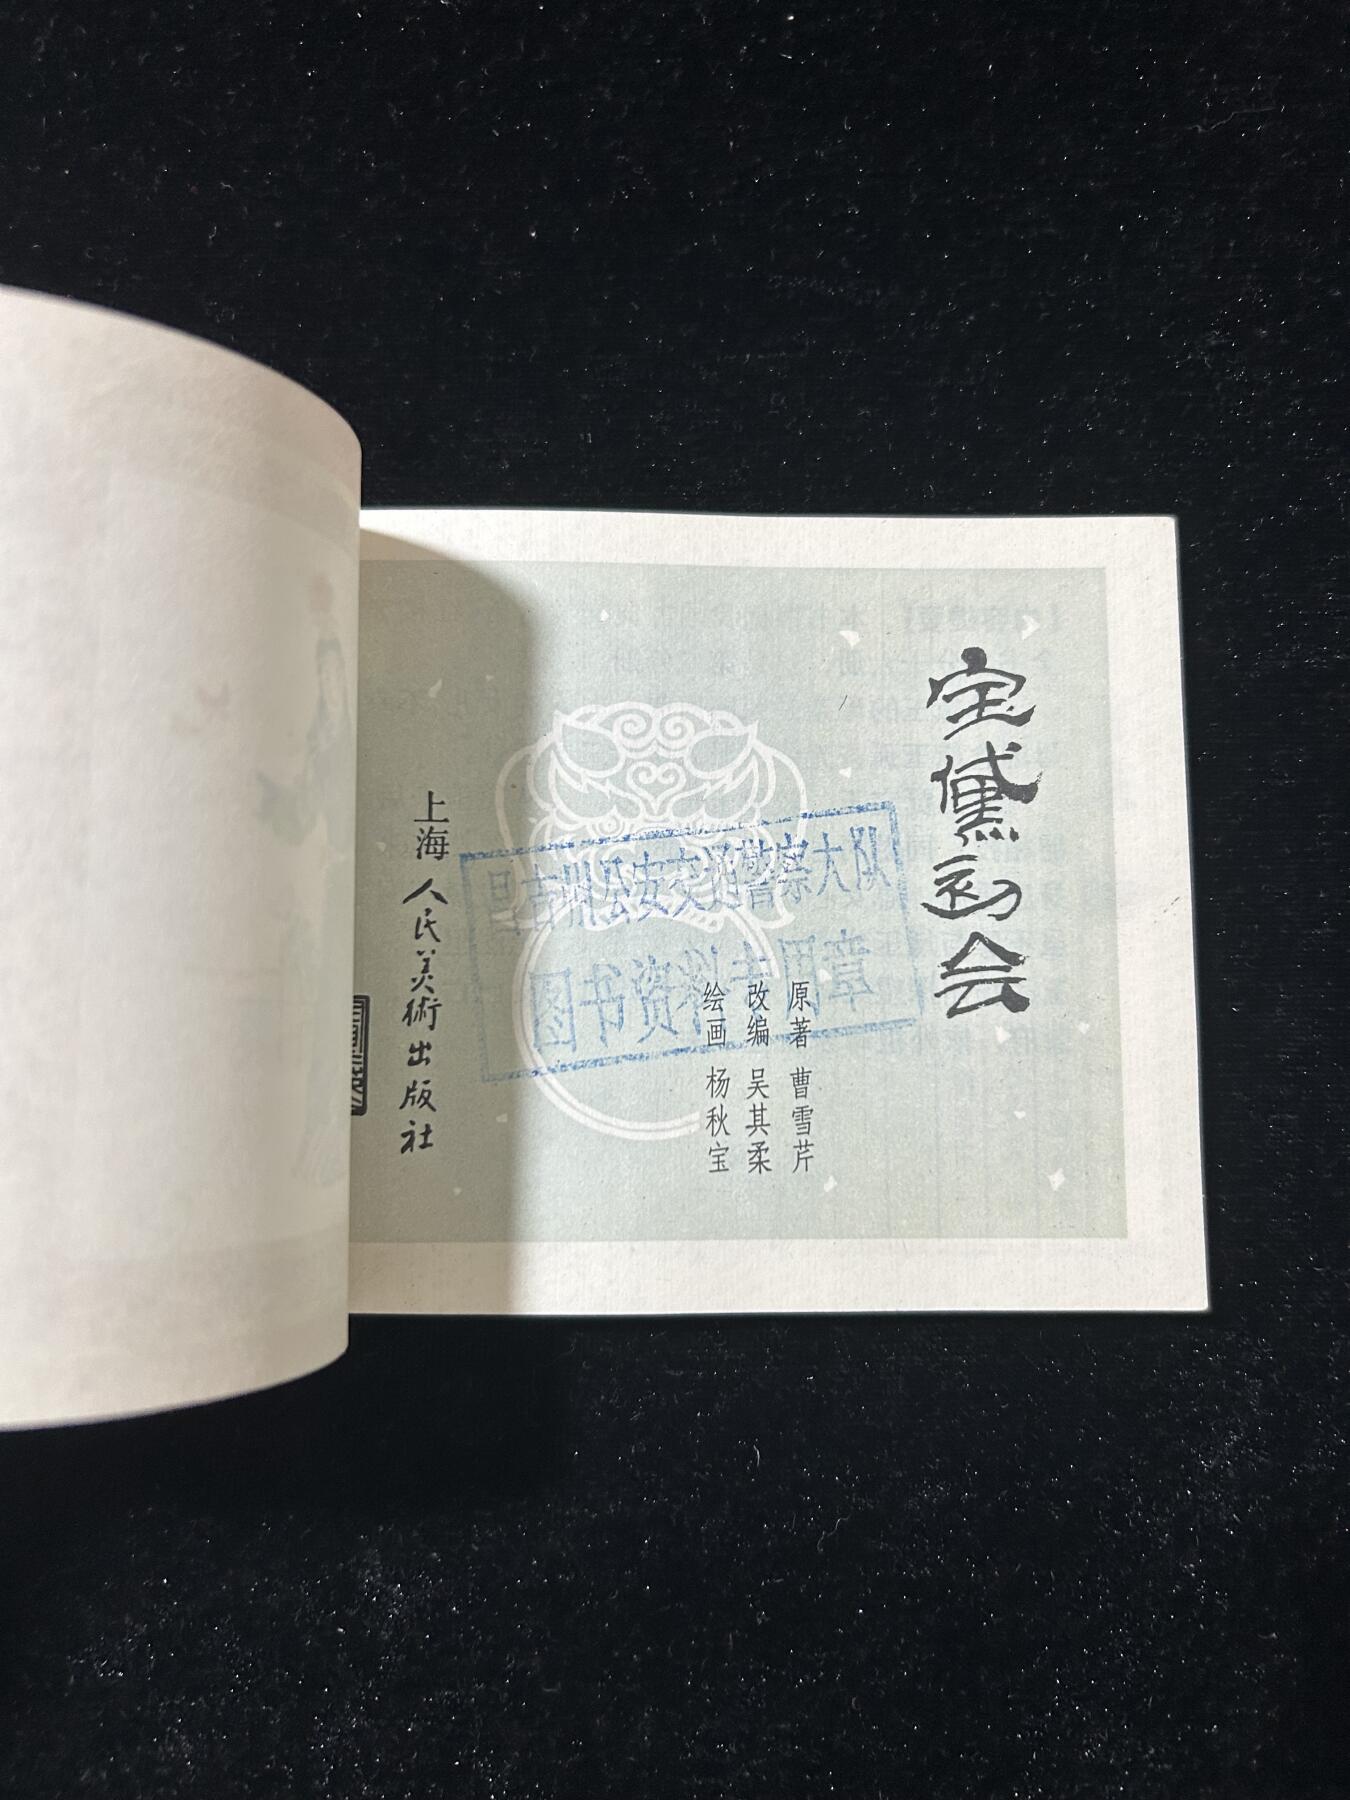 宝黛初会
原著 曹雪芹
改编 吴其柔
绘画 杨秋宝
上海人民美術出版社
昌吉州公安交通警察大队
图书资料专用章